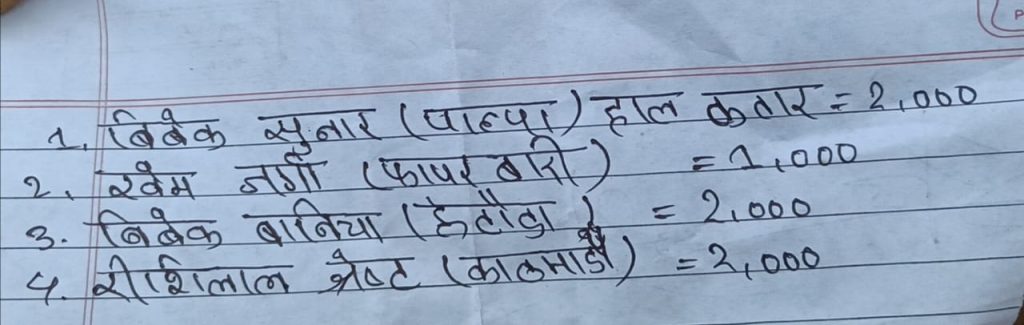 1. बिबेक सुनार (पाल्पा) हाल कतार = 2,000
2. खेम जर्गा (फापर बारी) = 1,000
3. बिबेक बानिया (हेटौडा) = 2,000
4. रीशिलाल श्रेष्ट (काठमाडौ) = 2,000